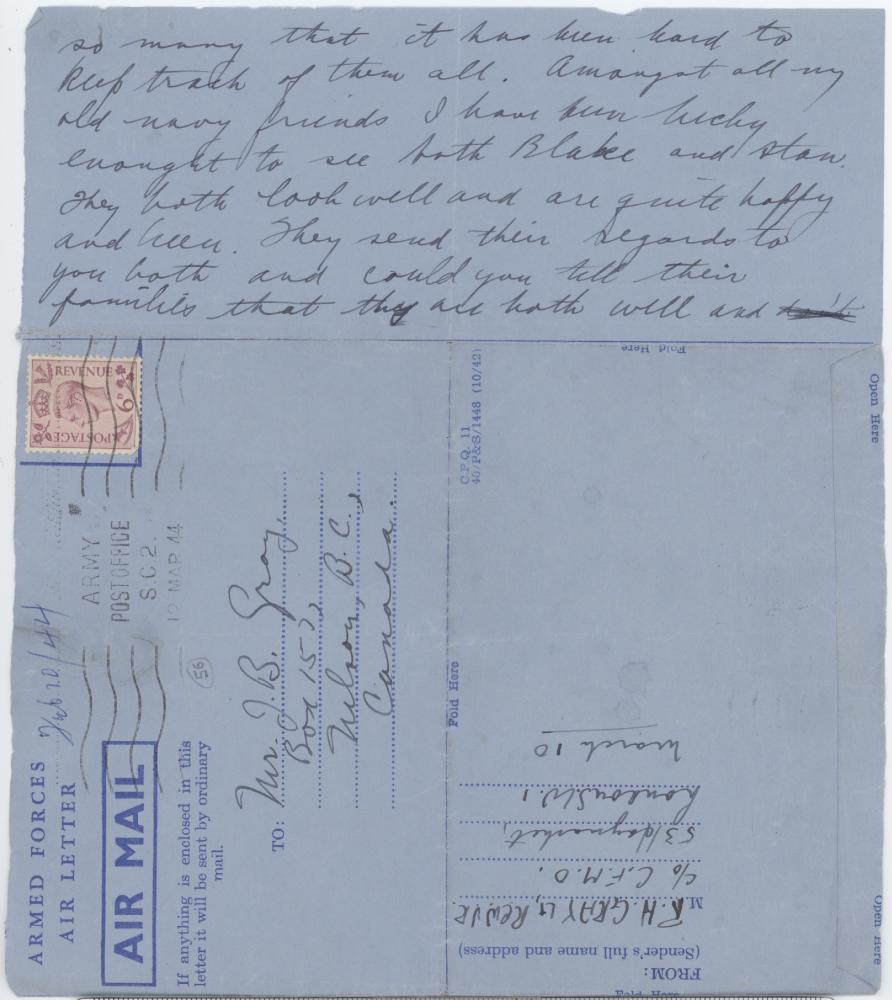 so many that it has been hard to
keep track of them all. Amongst all my
old navy friends I have been lucky
enought to see both Blake and Stan.
They both look well and are quite happy
and keen. They send their regards to
you both and could you tell their
families that they are both well and
REVENUE
6D
POSTAGE
ARMY
POST OFFICE
S.C.2.
12 MAR 44
ARMED FORCES
AIR LETTER
Feb 20/44
AIR MAIL
If anything is enclosed in this
letter it will be sent by ordinary
mail.
56
TO:
Mr. J.B. Gray,
Box 157,
Nelson, B.C.,
Canada.
C.P.Q. 11
40/P&S/1448 (10/42)
Fold Here
Fold Here
Open Here
Open Here
Fold Here
FROM:
(Sender's full name and address)
M R.H. GRAY Lt, RCNVR.
c/o C.F.M.O.
53 Haymarket,
London S.W.1
March 10